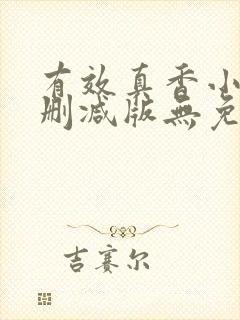 有效真香小
删减版無免
吉赛尔